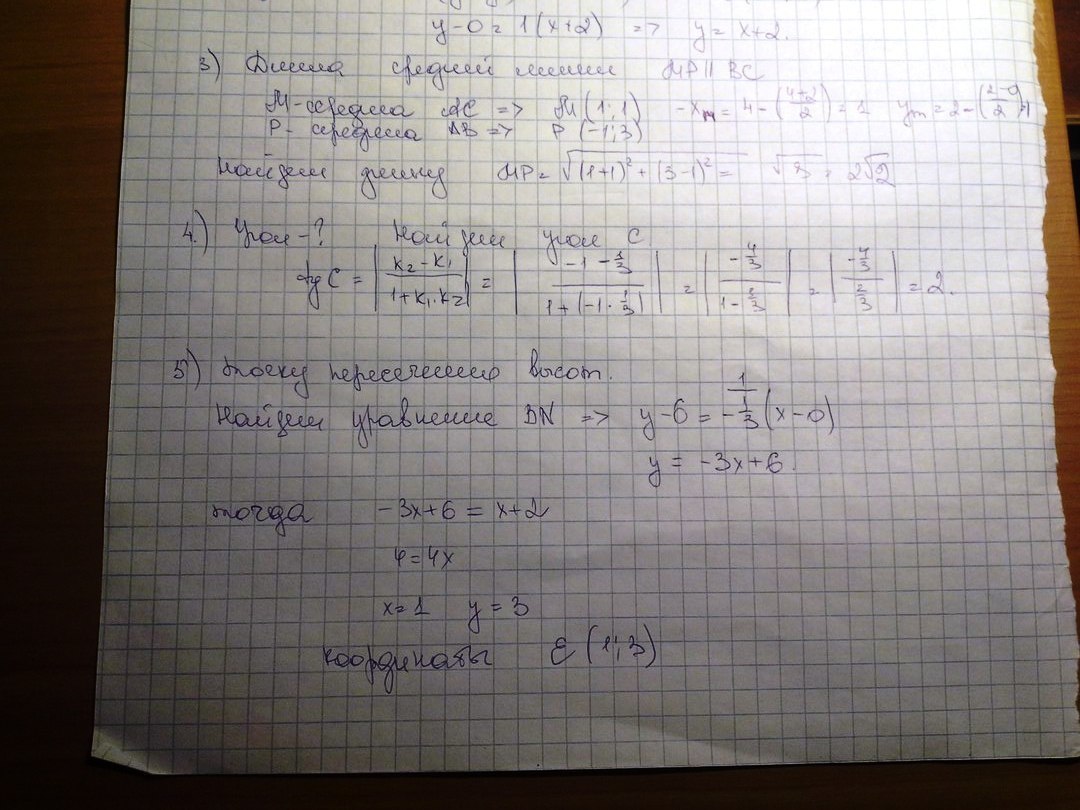 y-0=1(x+2) => y=x+2.
3) Длина средней линии MP || BC
M-середина AC => M(1;1) -x_m=4-(\frac{4+2}{2})=1 y_m=2-(\frac{2-0}{2})=1
P- середина AB => P(-1;3)
Найдем длину MP=\sqrt{(1+1)^2+(3-1)^2}=\sqrt{8}=2\sqrt{2}
4.) Угол-? Найдем угол C
tg C = |\frac{k_2-k_1}{1+k_1·k_2}| = |\frac{-1-\frac{1}{3}}{1+(-1·\frac{1}{3})}| = |\frac{-\frac{4}{3}}{1-\frac{1}{3}}| = |\frac{-\frac{4}{3}}{\frac{2}{3}}| = 2.
5) точку пересечения высот.
Найдем уравнение BN => y-6=-\frac{1}{\frac{1}{3}}(x-0)
y=-3x+6.
тогда -3x+6=x+2
4=4x
x=1 y=3
координаты E(1;3)